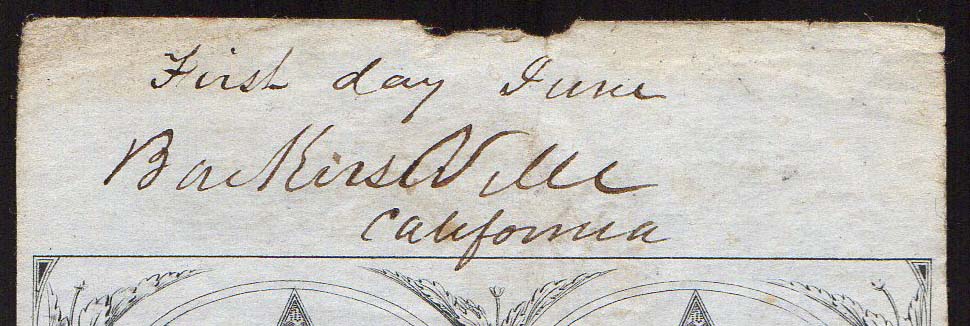 First day June
BarKersVille
California